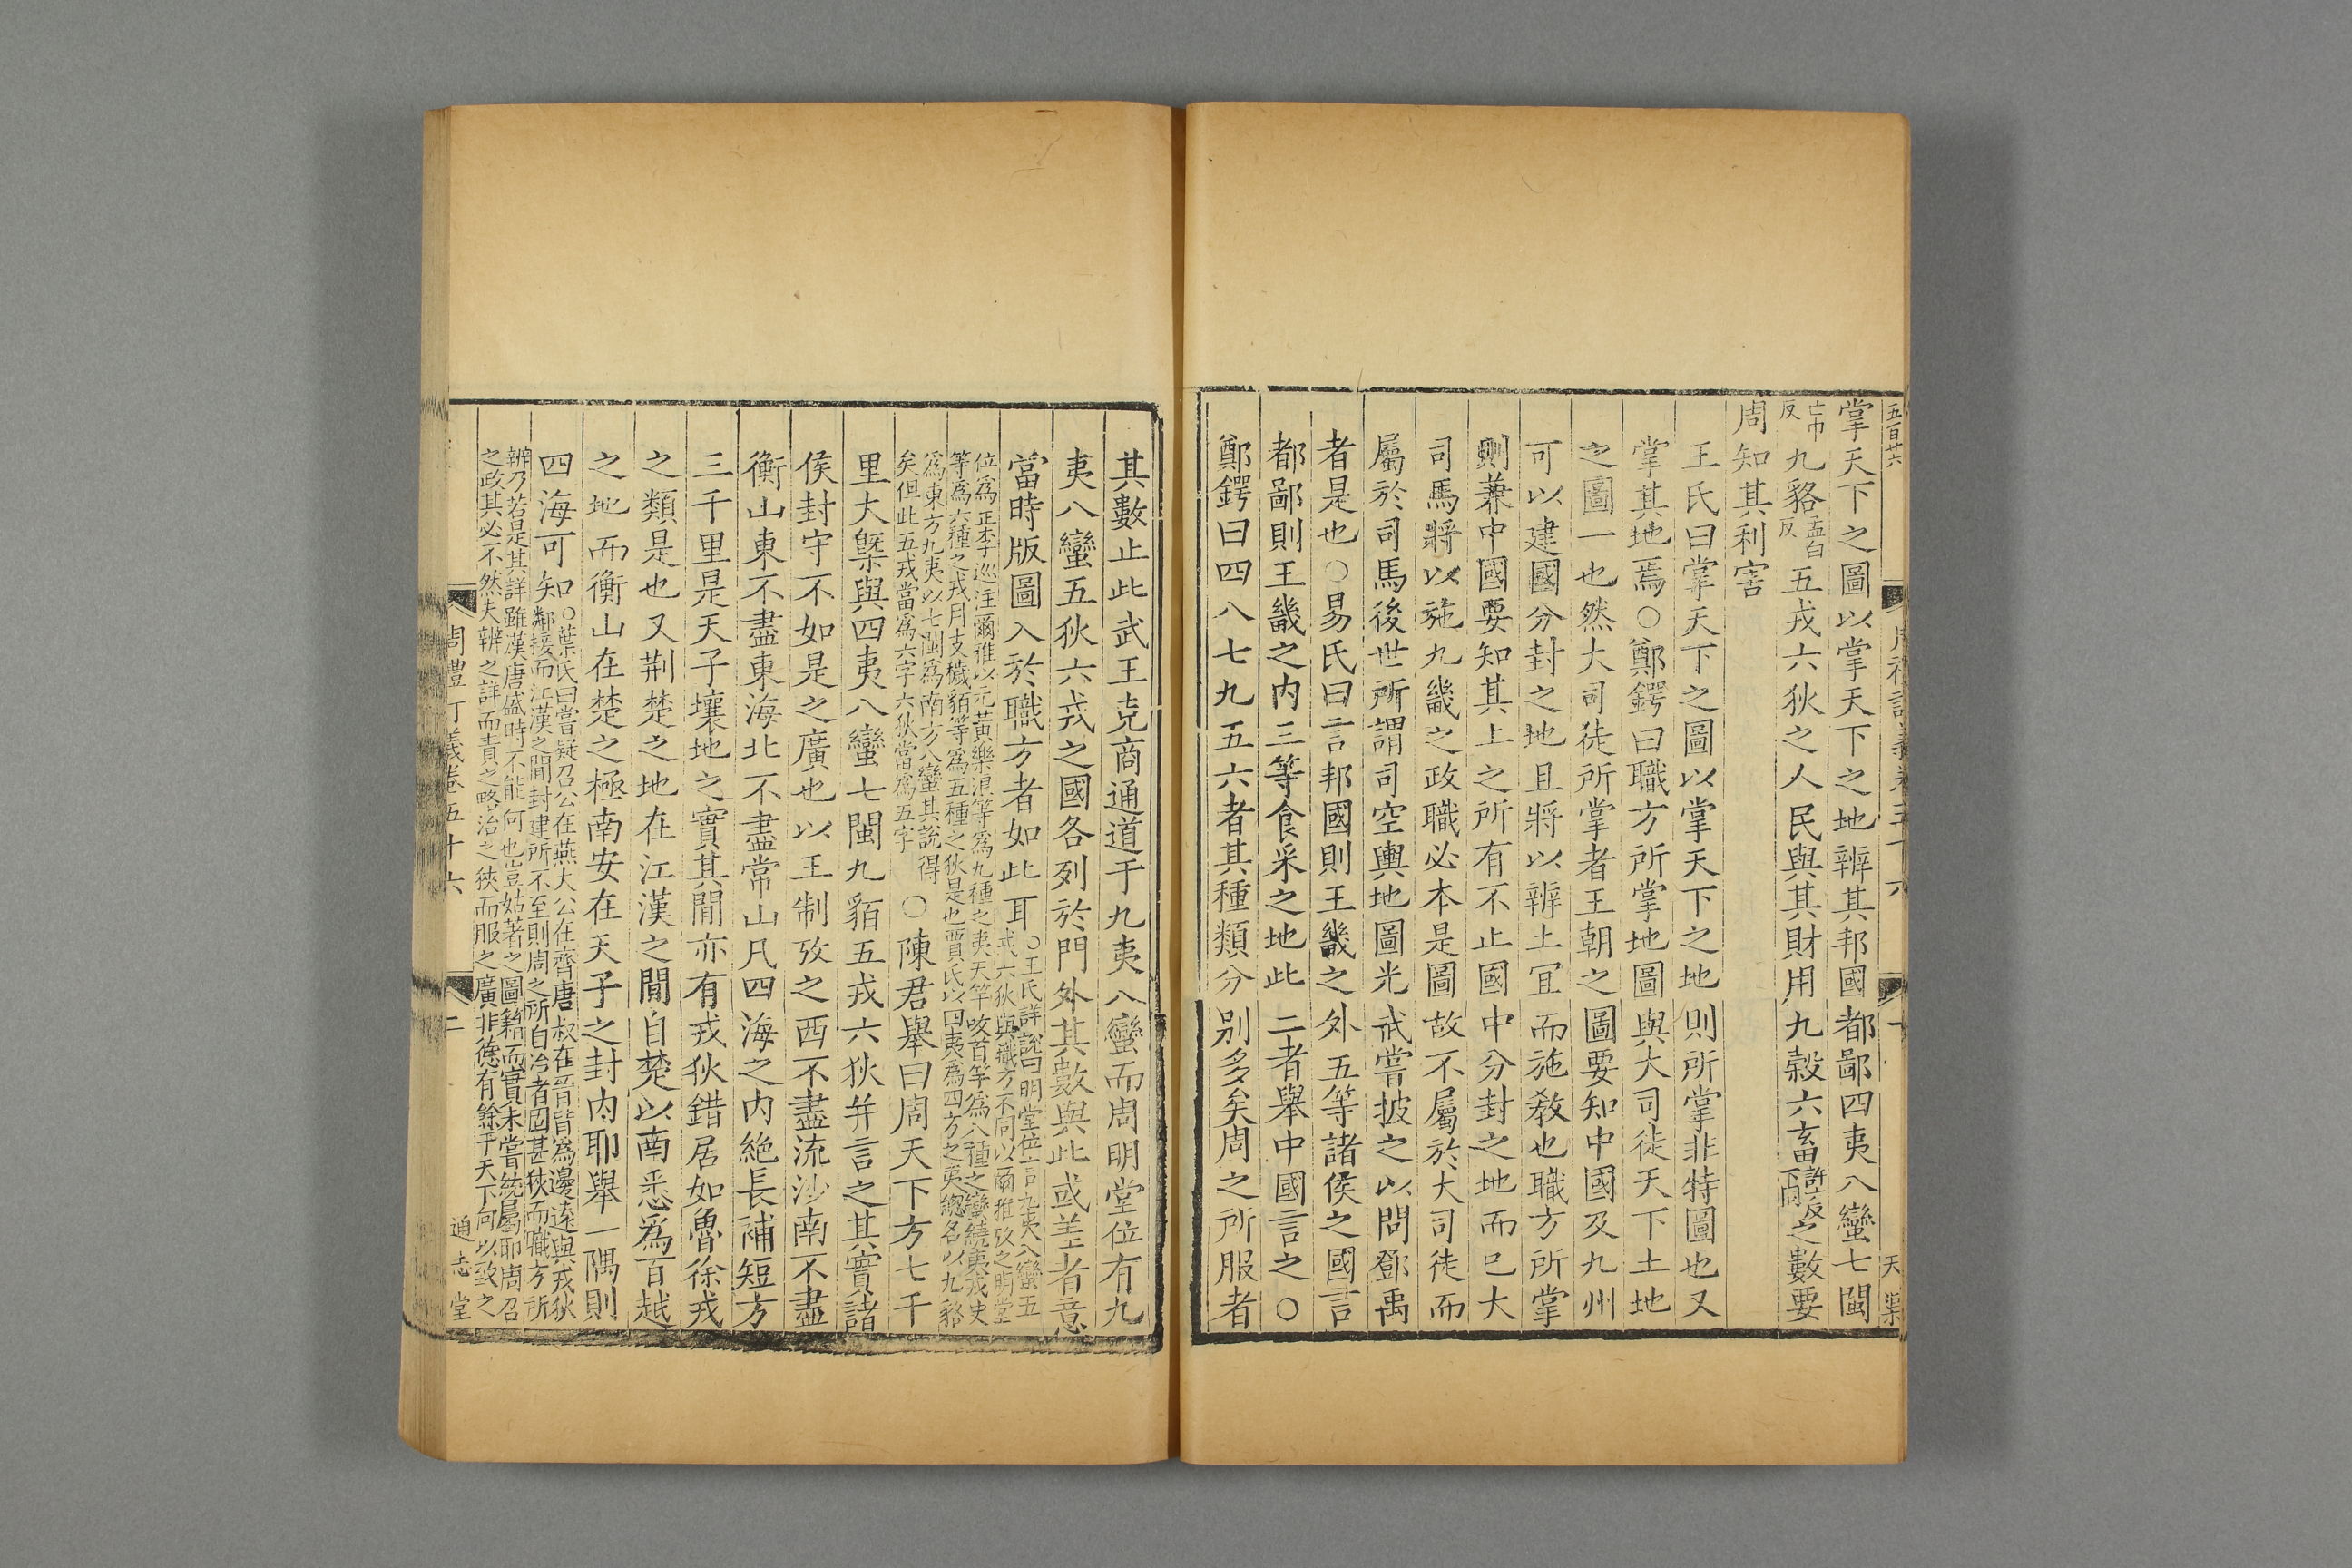 五百廿六
掌天下之圖以掌天下之地辨其邦國都鄙四夷八蠻七閩
亡巾反九貉孟白反五戎六狄之人民與其財用九穀六畜許又反下同之數要
周知其利害
王氏曰掌天下之圖以掌天下之地則所掌非特圖也又
掌其地焉○鄭鍔曰職方所掌地圖與大司徒天下土地
之圖一也然大司徒所掌者王朝之圖要知中國及九州
可以建國分封之地且將以辨土宜而施教也職方所掌
則兼中國要知其上之所有不止國中分封之地而已大
司馬將以施九畿之政職必本是圖故不屬於大司徒而
屬於司馬後世所謂司空輿地圖光武嘗披之以問鄧禹
者是也○易氏曰言邦國則王畿之外五等諸侯之國言
都鄙則王畿之内三等食采之地此二者舉中國言之○
鄭鍔曰四八七九五六者其種類分别多矣周之所服者
其數止此武王克商通道于九夷八蠻而周明堂位有九
夷八蠻五狄六戎之國各列於門外其數與此或差者意
當時版圖入於職方者如此耳○王氏詳說曰明堂位言九夷八蠻五
戎六狄與職方不同以爾雅攷之明堂
位爲正李巡注爾雅以元黃樂浪等爲九種之夷天竺咳首等爲八種之蠻繞夷戎史
等爲六種之戎月支穢貊等爲五種之狄是也賈氏以四夷爲四方之夷總名以九貉
爲東方九夷以七閩爲南方八蠻其說得
矣但此五戎當爲六字六狄當爲五字○陳君舉曰周天下方七千
里大槩與四夷八蠻七閩九貊五戎六狄并言之其實諸
侯封守不如是之廣也以王制攷之西不盡流沙南不盡
衡山東不盡東海北不盡常山凡四海之内絶長補短方
三千里是天子壤地之實其間亦有戎狄錯居如魯徐戎
之類是也又荆楚之地在江漢之間自楚以南悉爲百越
之地而衡山在楚之極南安在天子之封内耶舉一隅則
四海可知○葉氏曰嘗疑召公在燕大公在齊唐叔在晉皆爲邊遠與戎狄
鄰接而江漢之間封建所不至則周之所自治者固甚狹而職方所
辨乃若是其詳雖漢唐盛時不能何也豈姑著之圖籍而實未嘗統屬耶周召
之政其必不然夫辨之詳而責之略治之狹而服之廣非德有餘于天下何以致之
周禮訂義卷五十六
二
通志堂